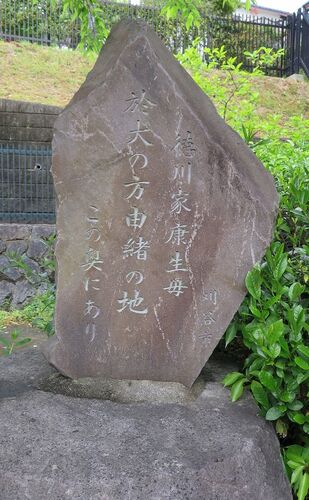 徳川家康生母
於大の方由緒の地
この奥にあり
刈谷市